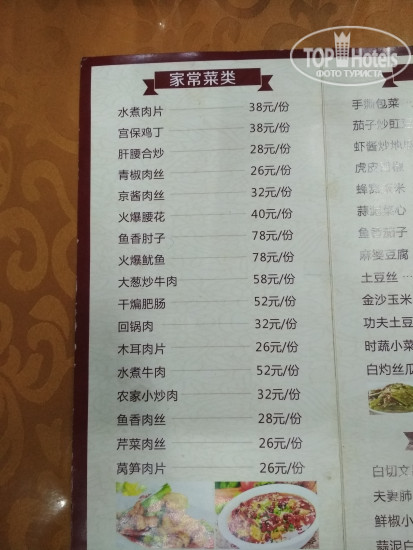 TOP Hotels
ФОТО ТУРИСТА
家常菜类
水煮肉片 38元/份
宫保鸡丁 38元/份
肝腰合炒 28元/份
青椒肉丝 26元/份
京酱肉丝 32元/份
火爆腰花 40元/份
鱼香肘子 78元/份
火爆鱿鱼 78元/份
大葱炒牛肉 58元/份
干煸肥肠 52元/份
回锅肉 32元/份
木耳肉片 26元/份
水煮牛肉 52元/份
农家小炒肉 32元/份
鱼香肉丝 28元/份
芹菜肉丝 26元/份
莴笋肉片 26元/份
手撕包菜
茄子炒豇
虾酱炒
虎皮
蒜
鱼香茄子
麻婆豆腐
土豆丝
金沙玉米
功夫土豆
时蔬小菜
白灼丝瓜
白切文
夫妻肺
鲜椒小
蒜泥白